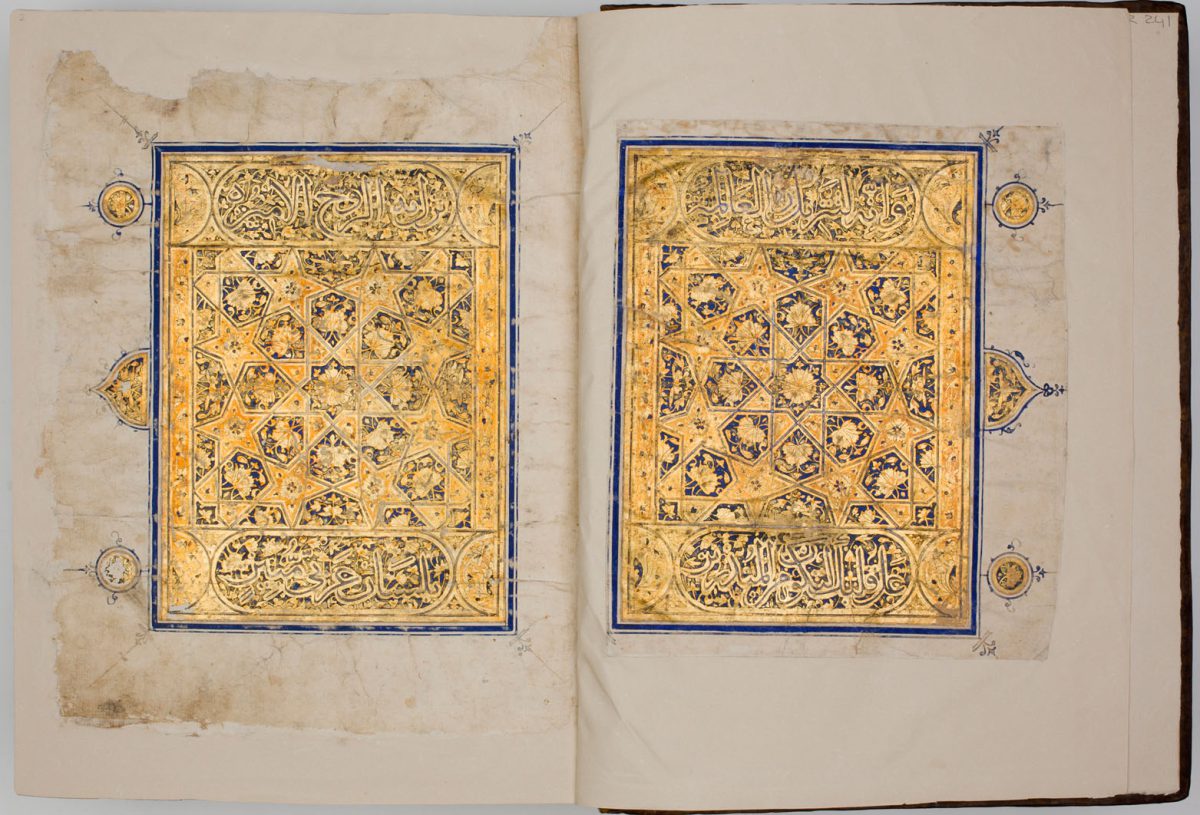 وانه لتنزيل رب العالمين
نزل به الروح الامين
على قلبك لتكون من المنذرين
بلسان عربي مبين
241